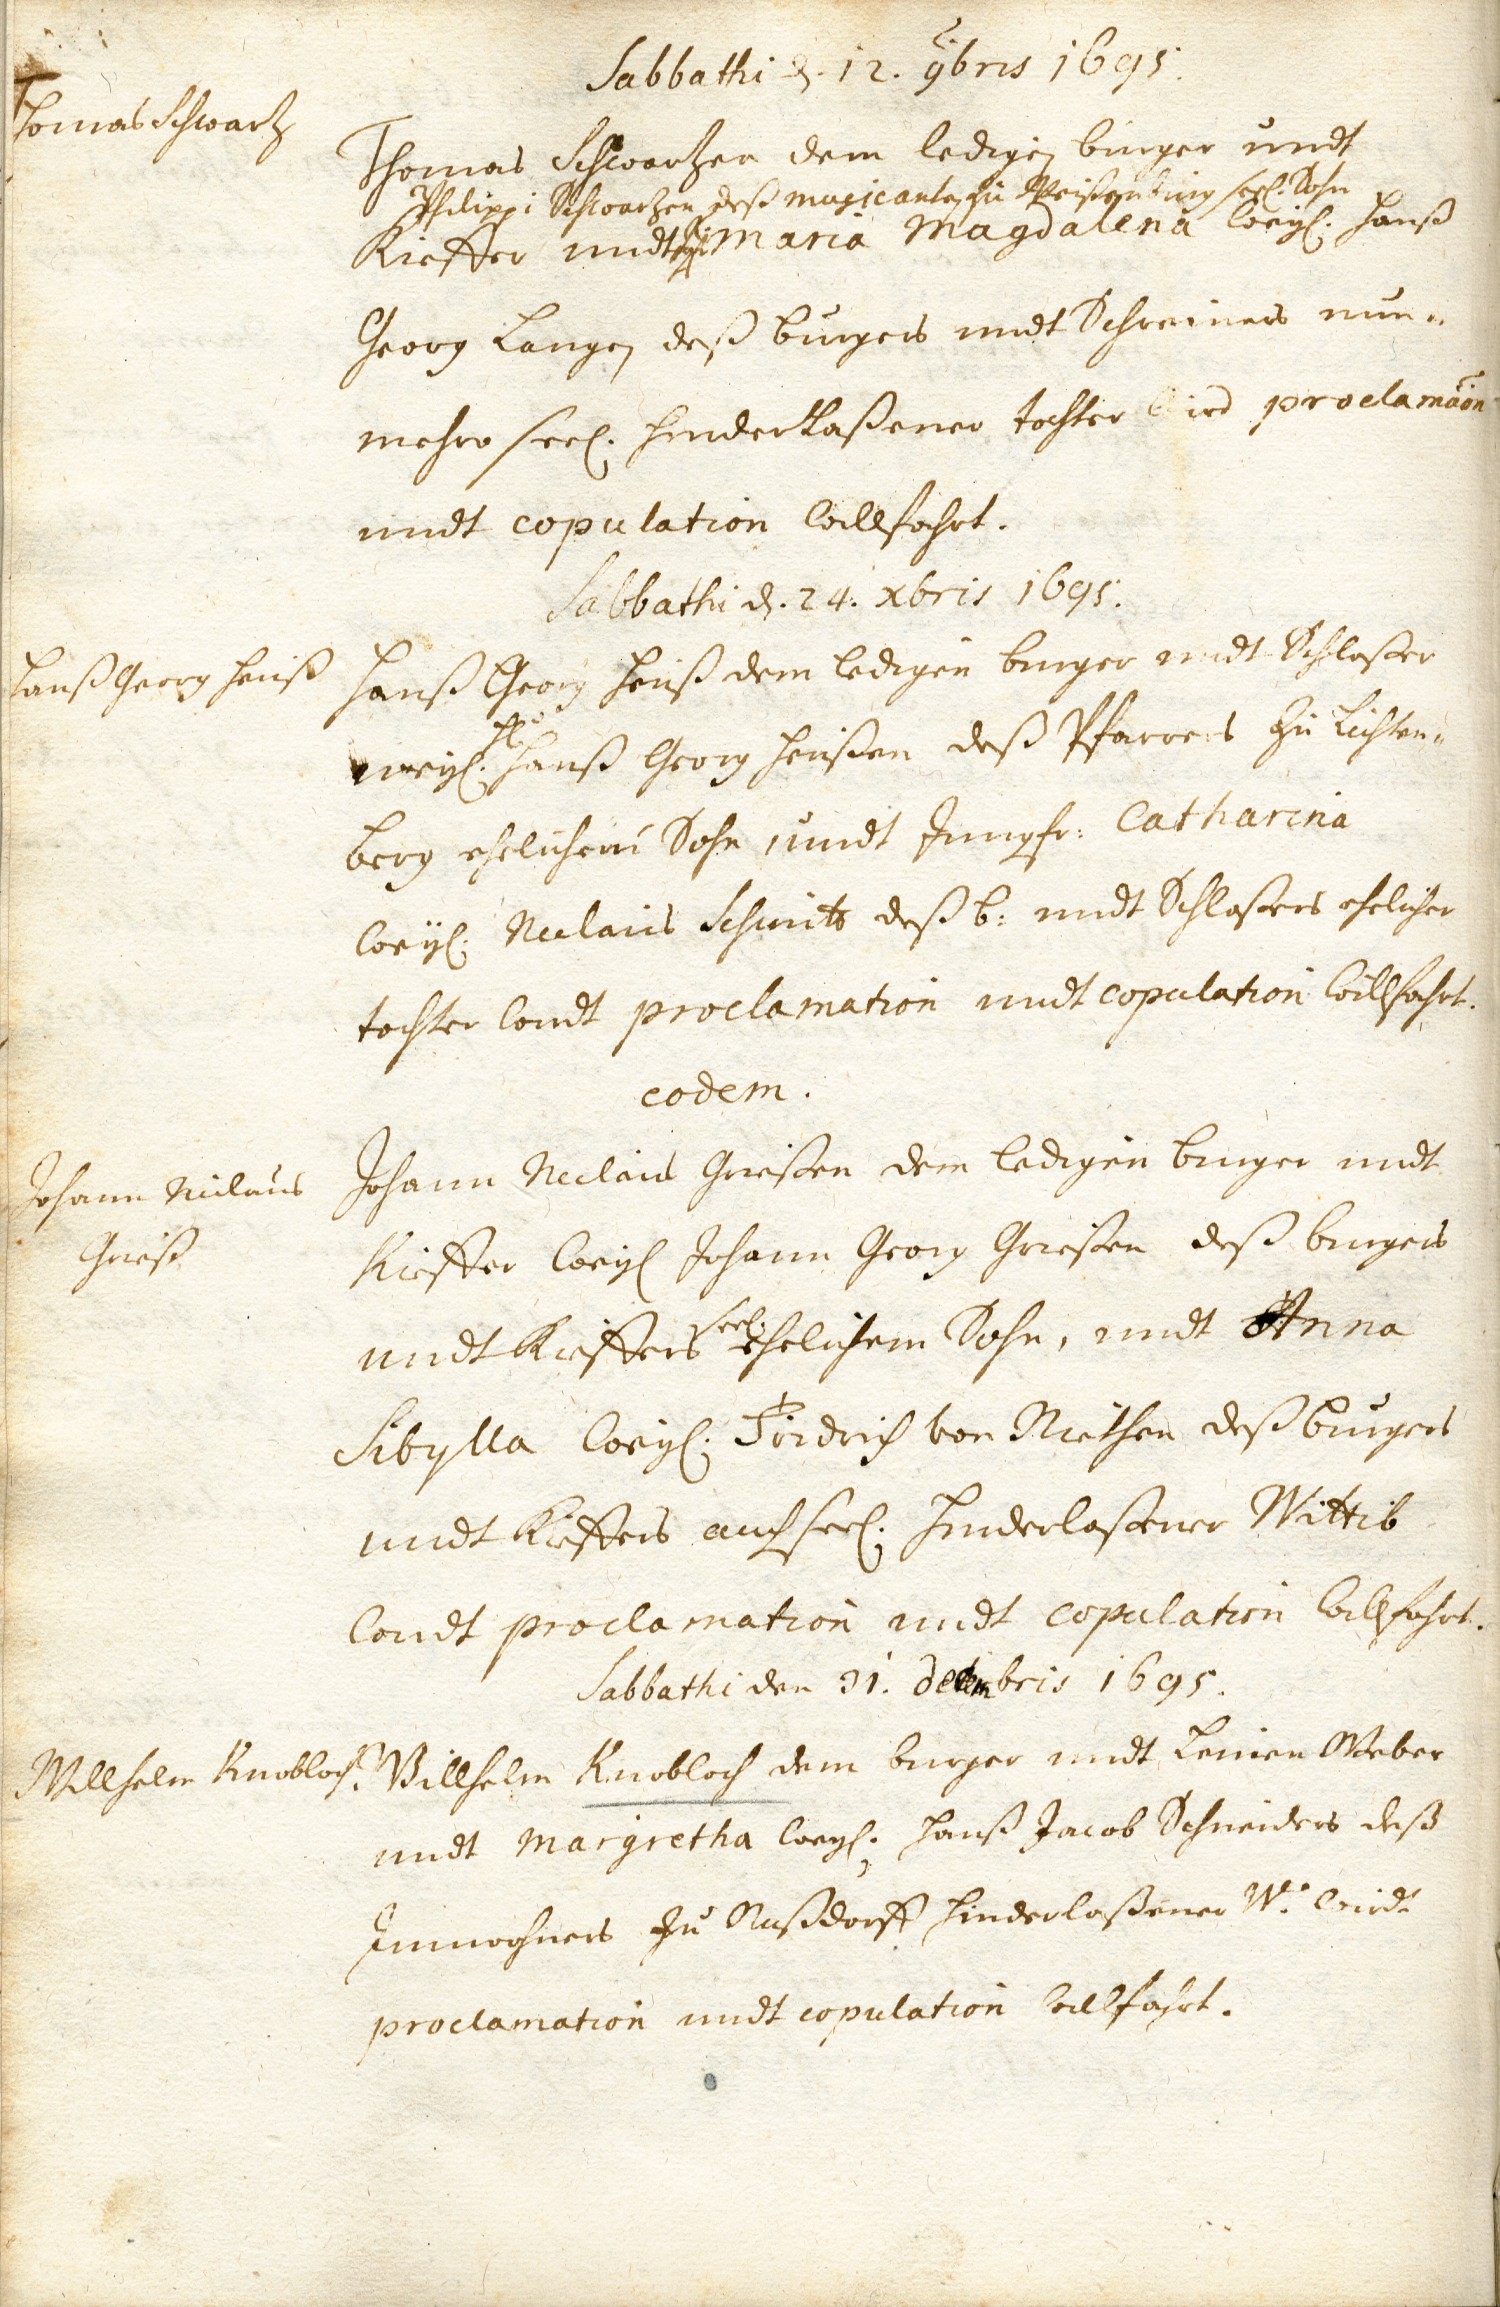 Sabbathi d. 12. 9bris 1695.
Thomas Schwartz
Thomas Schwartzen dem ledigen burger undt
Philippi Schwartzen deß musicanten zu Weißenburg seel. Sohn
Kieffer undt Maria Magdalena weyl. Hanß
Georg Langen deß burgers undt Schreiners nun=
mehro seel. hinderlaßener tochter wird proclamaon
undt copulation willfahrt.
Sabbathi d. 24. xbris 1695.
Hanß Georg Heuß
Hanß Georg Heuß dem ledigen burger undt Schloßer
weyl. H. Hanß Georg Heußen deß Pfarrers zu Lichten=
berg ehelichem Sohn, undt Jungfr: Catharina
weyl. Niclaus Schmits deß b: undt Schloßers ehelicher
tochter wirdt proclamation undt copulation willfahrt.
eodem.
Johann Niclaus
Grieß
Johann Niclaus Grießen dem ledigen burger undt
Kieffer weyl Johann Georg Grießen deß burgers
undt Kieffers seel. ehelichem Sohn, undt Anna
Sibylla weyl. Fridrich von Niethen deß burgers
undt Kieffers auch seel. hinderlaßener Wittib
wirdt proclamation undt copulation willfahrt.
Sabbathi den 31. decembris 1695.
Willhelm Knobloch.
Willhelm Knobloch dem burger undt Leinen Weber
undt Margretha weyl. Hanß Jacob Schneiders deß
Innwohners zu Nußdorff hinderlaßener W. wird
proclamation undt copulation willfahrt.